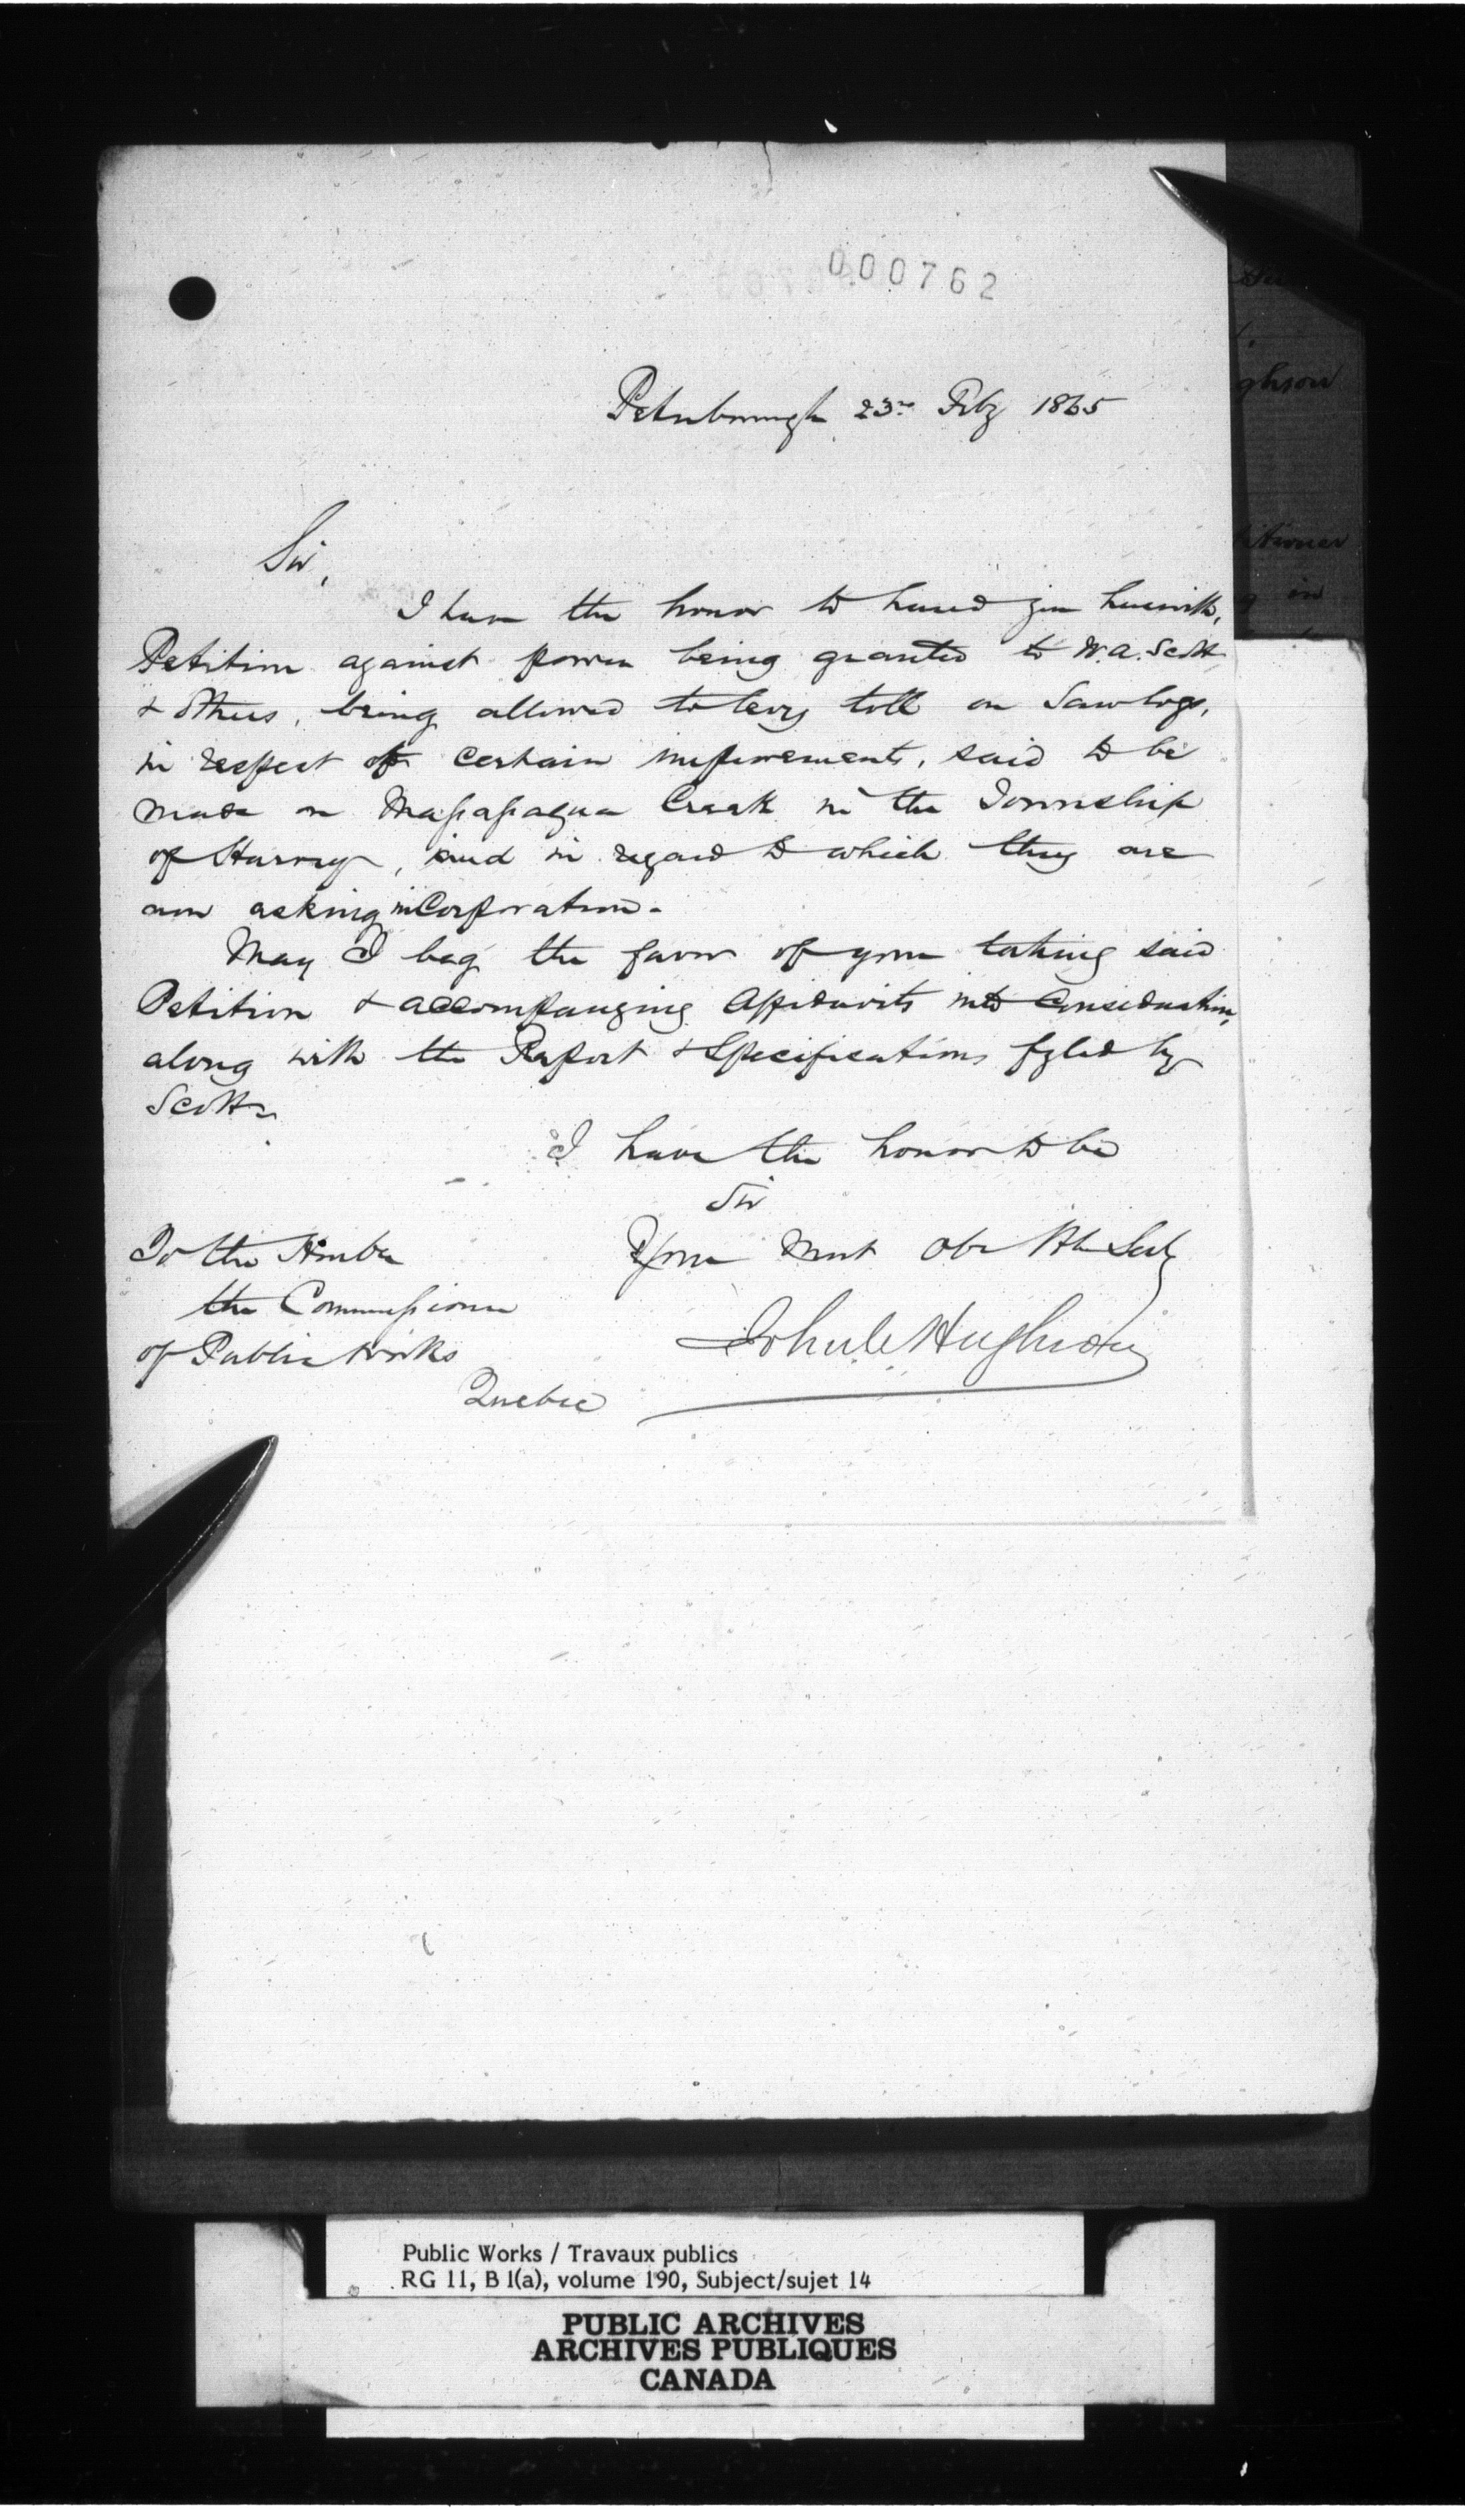 000762
Peterborough 23rd Feby 1865
Sir,
I have the honor to hand you herewith,
Petition against power being granted to W.A. Scott
& others, being allowed to levy toll on Saw logs,
in respect of certain improvements, said to be
made on Creek in the Township
of Harvey, and in regard to which they are
now asking inCorporation.
May I beg the favor of your taking said
Petition & accompanying Affidavits into Consideration,
along with the Report & Specifications fyled by
Scott.
I have the honor to be
Sir
Your most Obt Hle Servt
To the Honble
the Commissioner
of Public Works
Quebec
ghson
in
Public Works / Travaux publics
RG 11, B 1(a), volume 190, Subject/sujet 14
PUBLIC ARCHIVES
ARCHIVES PUBLIQUES
CANADA